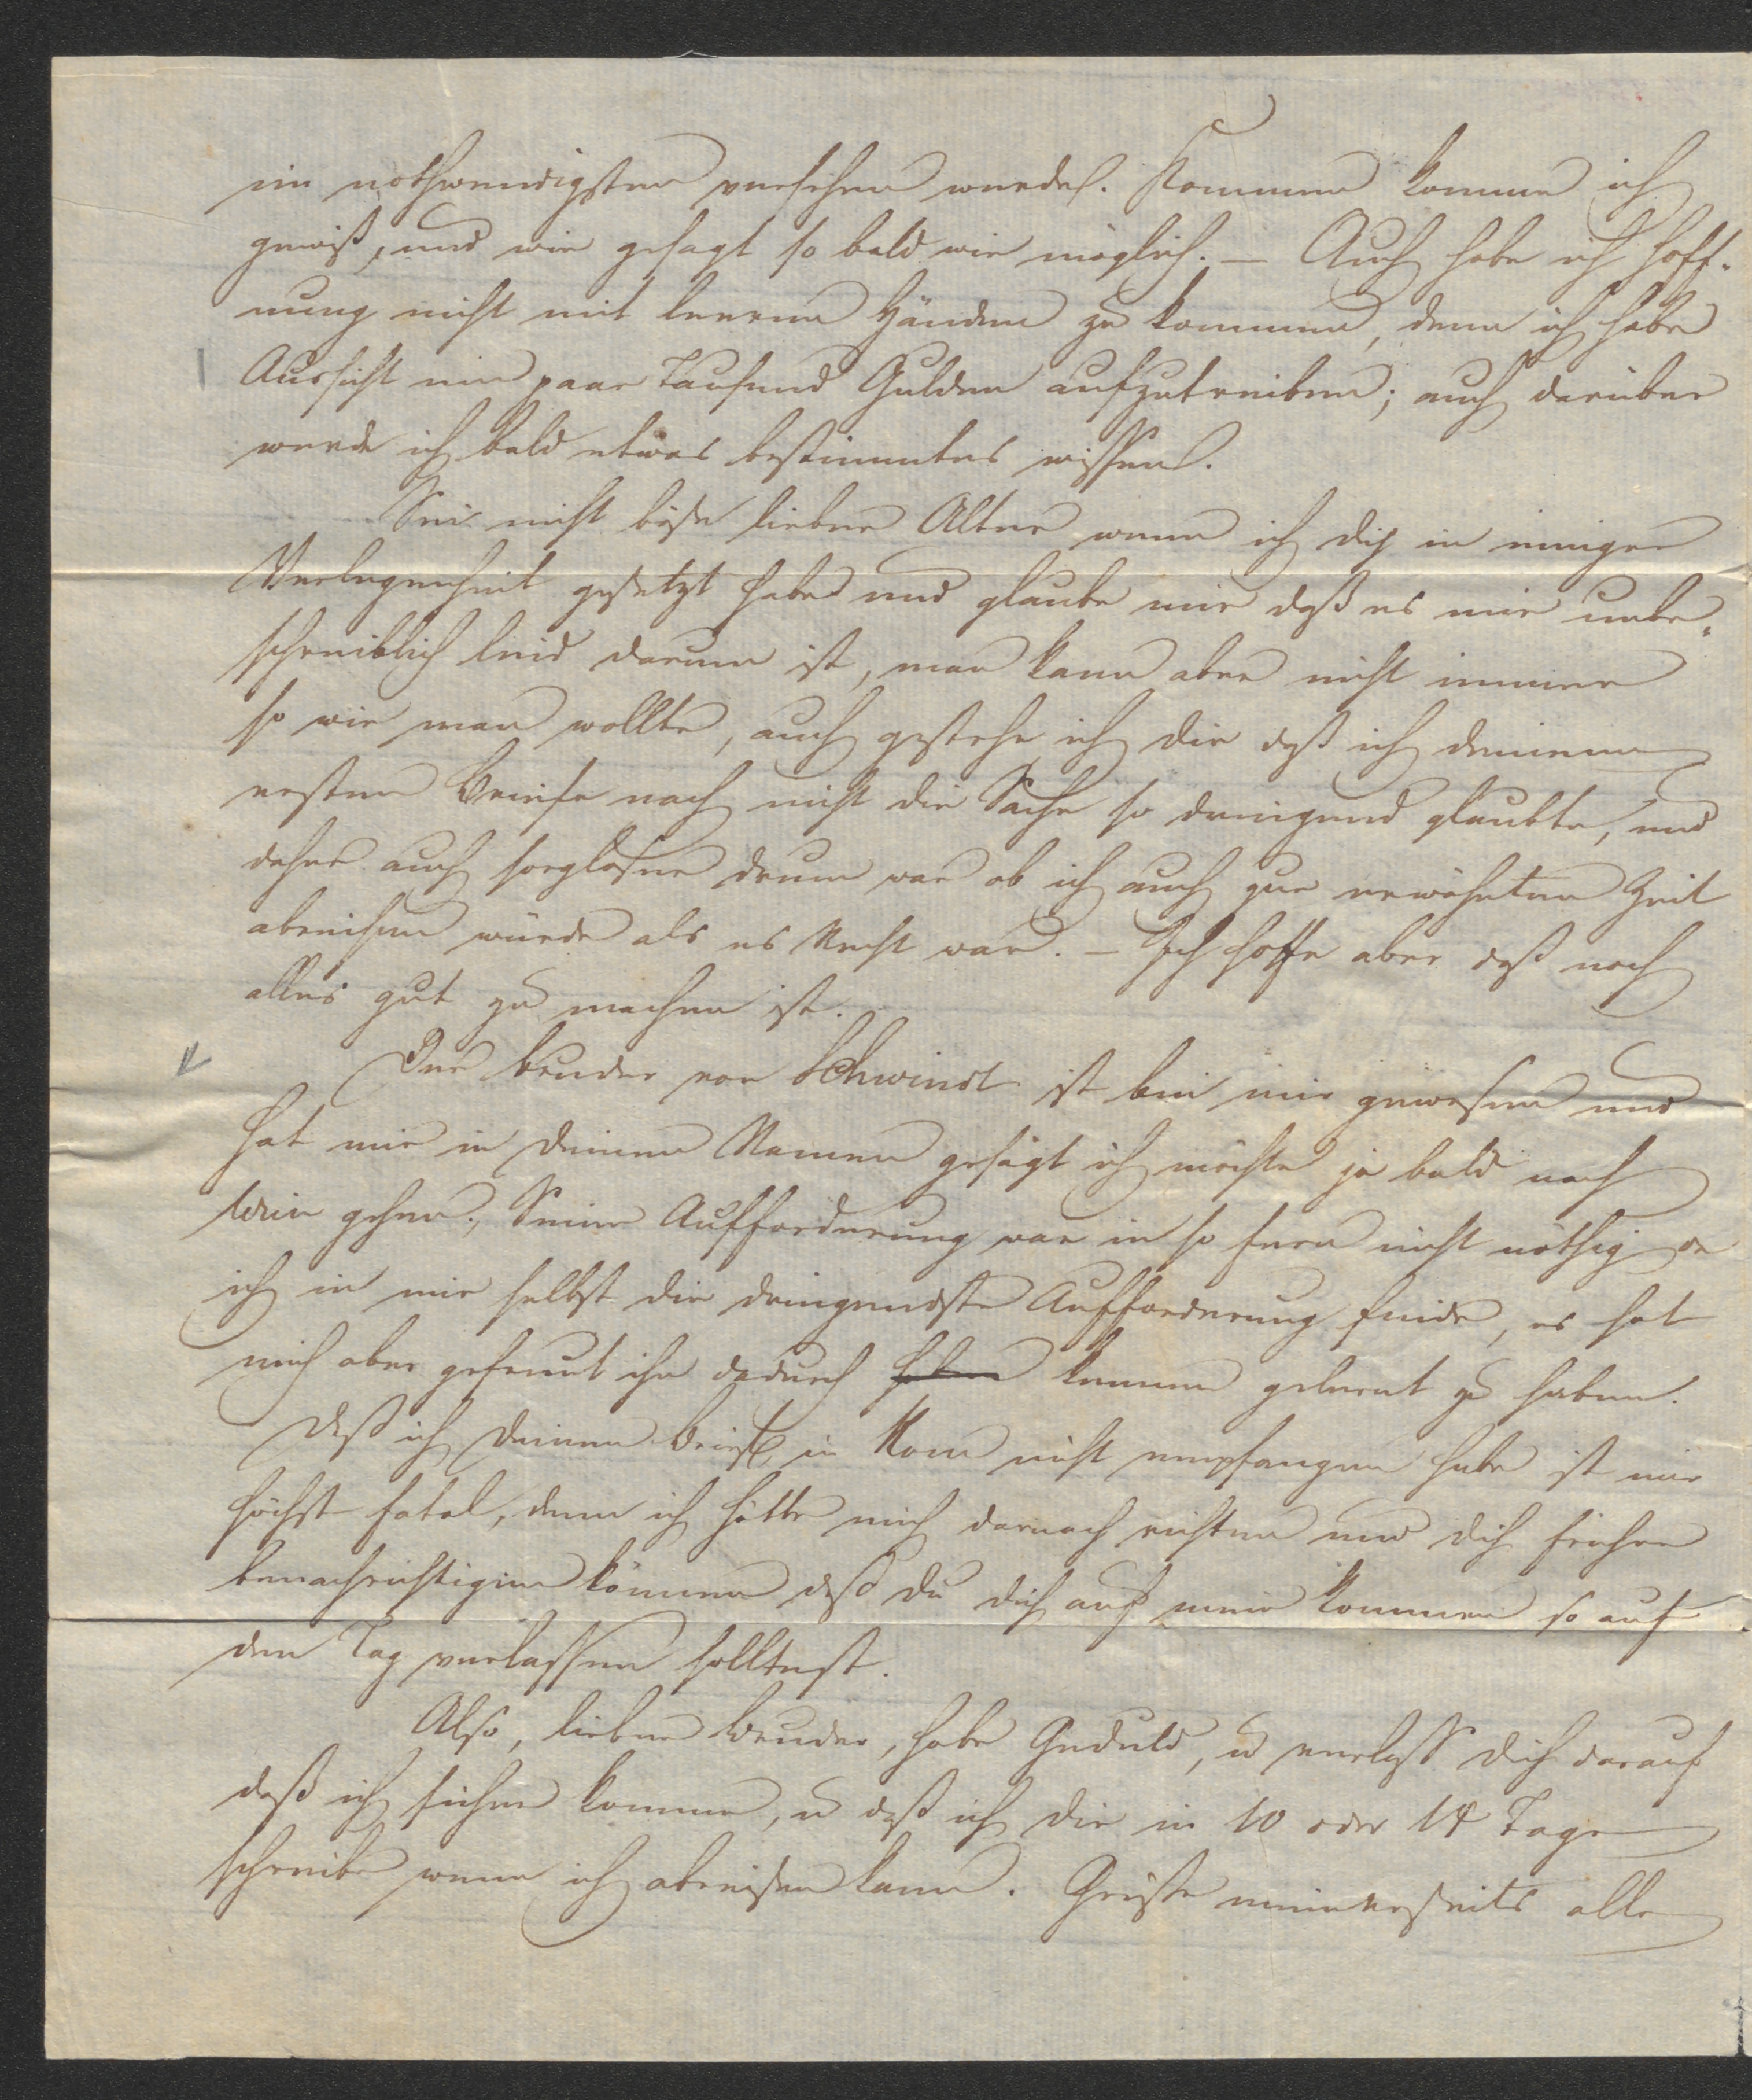 im nothwendigsten versehen werde. Kommen komme ich
gewiß, und wie gesagt so bald wie möglich. — Auch habe ich Hoff-
nung nicht mit leeren Händen zu kommen, denn ich habe
Aussicht ein paar Tausend Gulden aufzutreiben; auch darüber
werde ich bald etwas bestimmtes wissen.
Sei nicht böse lieber Alter wenn ich dich in einiger
Verlegenheit gesetzt habe und glaube mir daß es mir unbe-
schreiblich leid darum ist, man kann aber nicht immer
so wie man wollte, auch gestehe ich dir daß ich deinem
ersten Briefe nach nicht die Sache so dringend glaubte, und
daher auch sorgloser drum war ob ich auch zur erwähnten Zeit
abreisen würde als es Recht war. — Ich hoffe aber daß noch
alles gut zu machen ist.
Der Bruder von Schwindt ist bei mir gewesen und
hat mir in deinem Namen gesagt ich möchte ja bald nach
Wien gehen. Seine Aufforderung war in so fern nicht nöthig da
ich in mir selbst die dringendste Aufforderung finde, es hat
mich aber gefreut ihn dadurch haben kennen gelernt zu haben.
Daß ich deinen Brief in Rom nicht empfangen habe ist mir
höchst fatal, denn ich hätte mich darnach richten und dich früher
benachrichtigen können daß du dich auf mein Kommen so auf
den Tag verlassen solltest.
Also, lieber Bruder, habe Geduld, u verlaß dich darauf
daß ich sicher komme, u daß ich dir in 10 oder 14 Tage
schreibe wenn ich abreisen kann. Grüße meinerseits alle